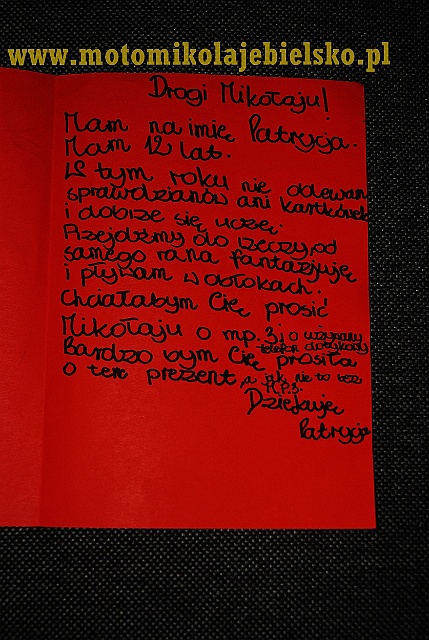 www.motomikolajebielsko.pl
Drogi Mikołaju!
Mam na imię Patrycja.
Mam 12 lat.
W tym roku nie oblewam
sprawdzianów ani kartkówek
i dobrze się uczę.
Przejdźmy do rzeczy, od
samego rana fantazjuję
i pływam w obłokach.
Chciałabym Cię prosić
Mikołaju o mp.3, i o używany
telefon dotykowy
Bardzo bym Cię prosiła
o ten prezent, a jak nie to bez
M.P3.
Dziękuję
Patrycja